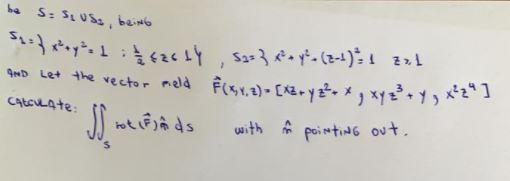 be S = S1 U S2, being
S1 = } x² + y² = 1 ; 1/2 ≤ z ≤ 1 }, S2 = } x² + y² + (z-1)² = 1 z ≥ 1
AND Let the vector field F̂(x,y,z) = [xz + yz² + x, xyz³ + y, x²z⁴]
CALCULATE: ∬_S rot(F̂) n̂ ds with n̂ pointing out.